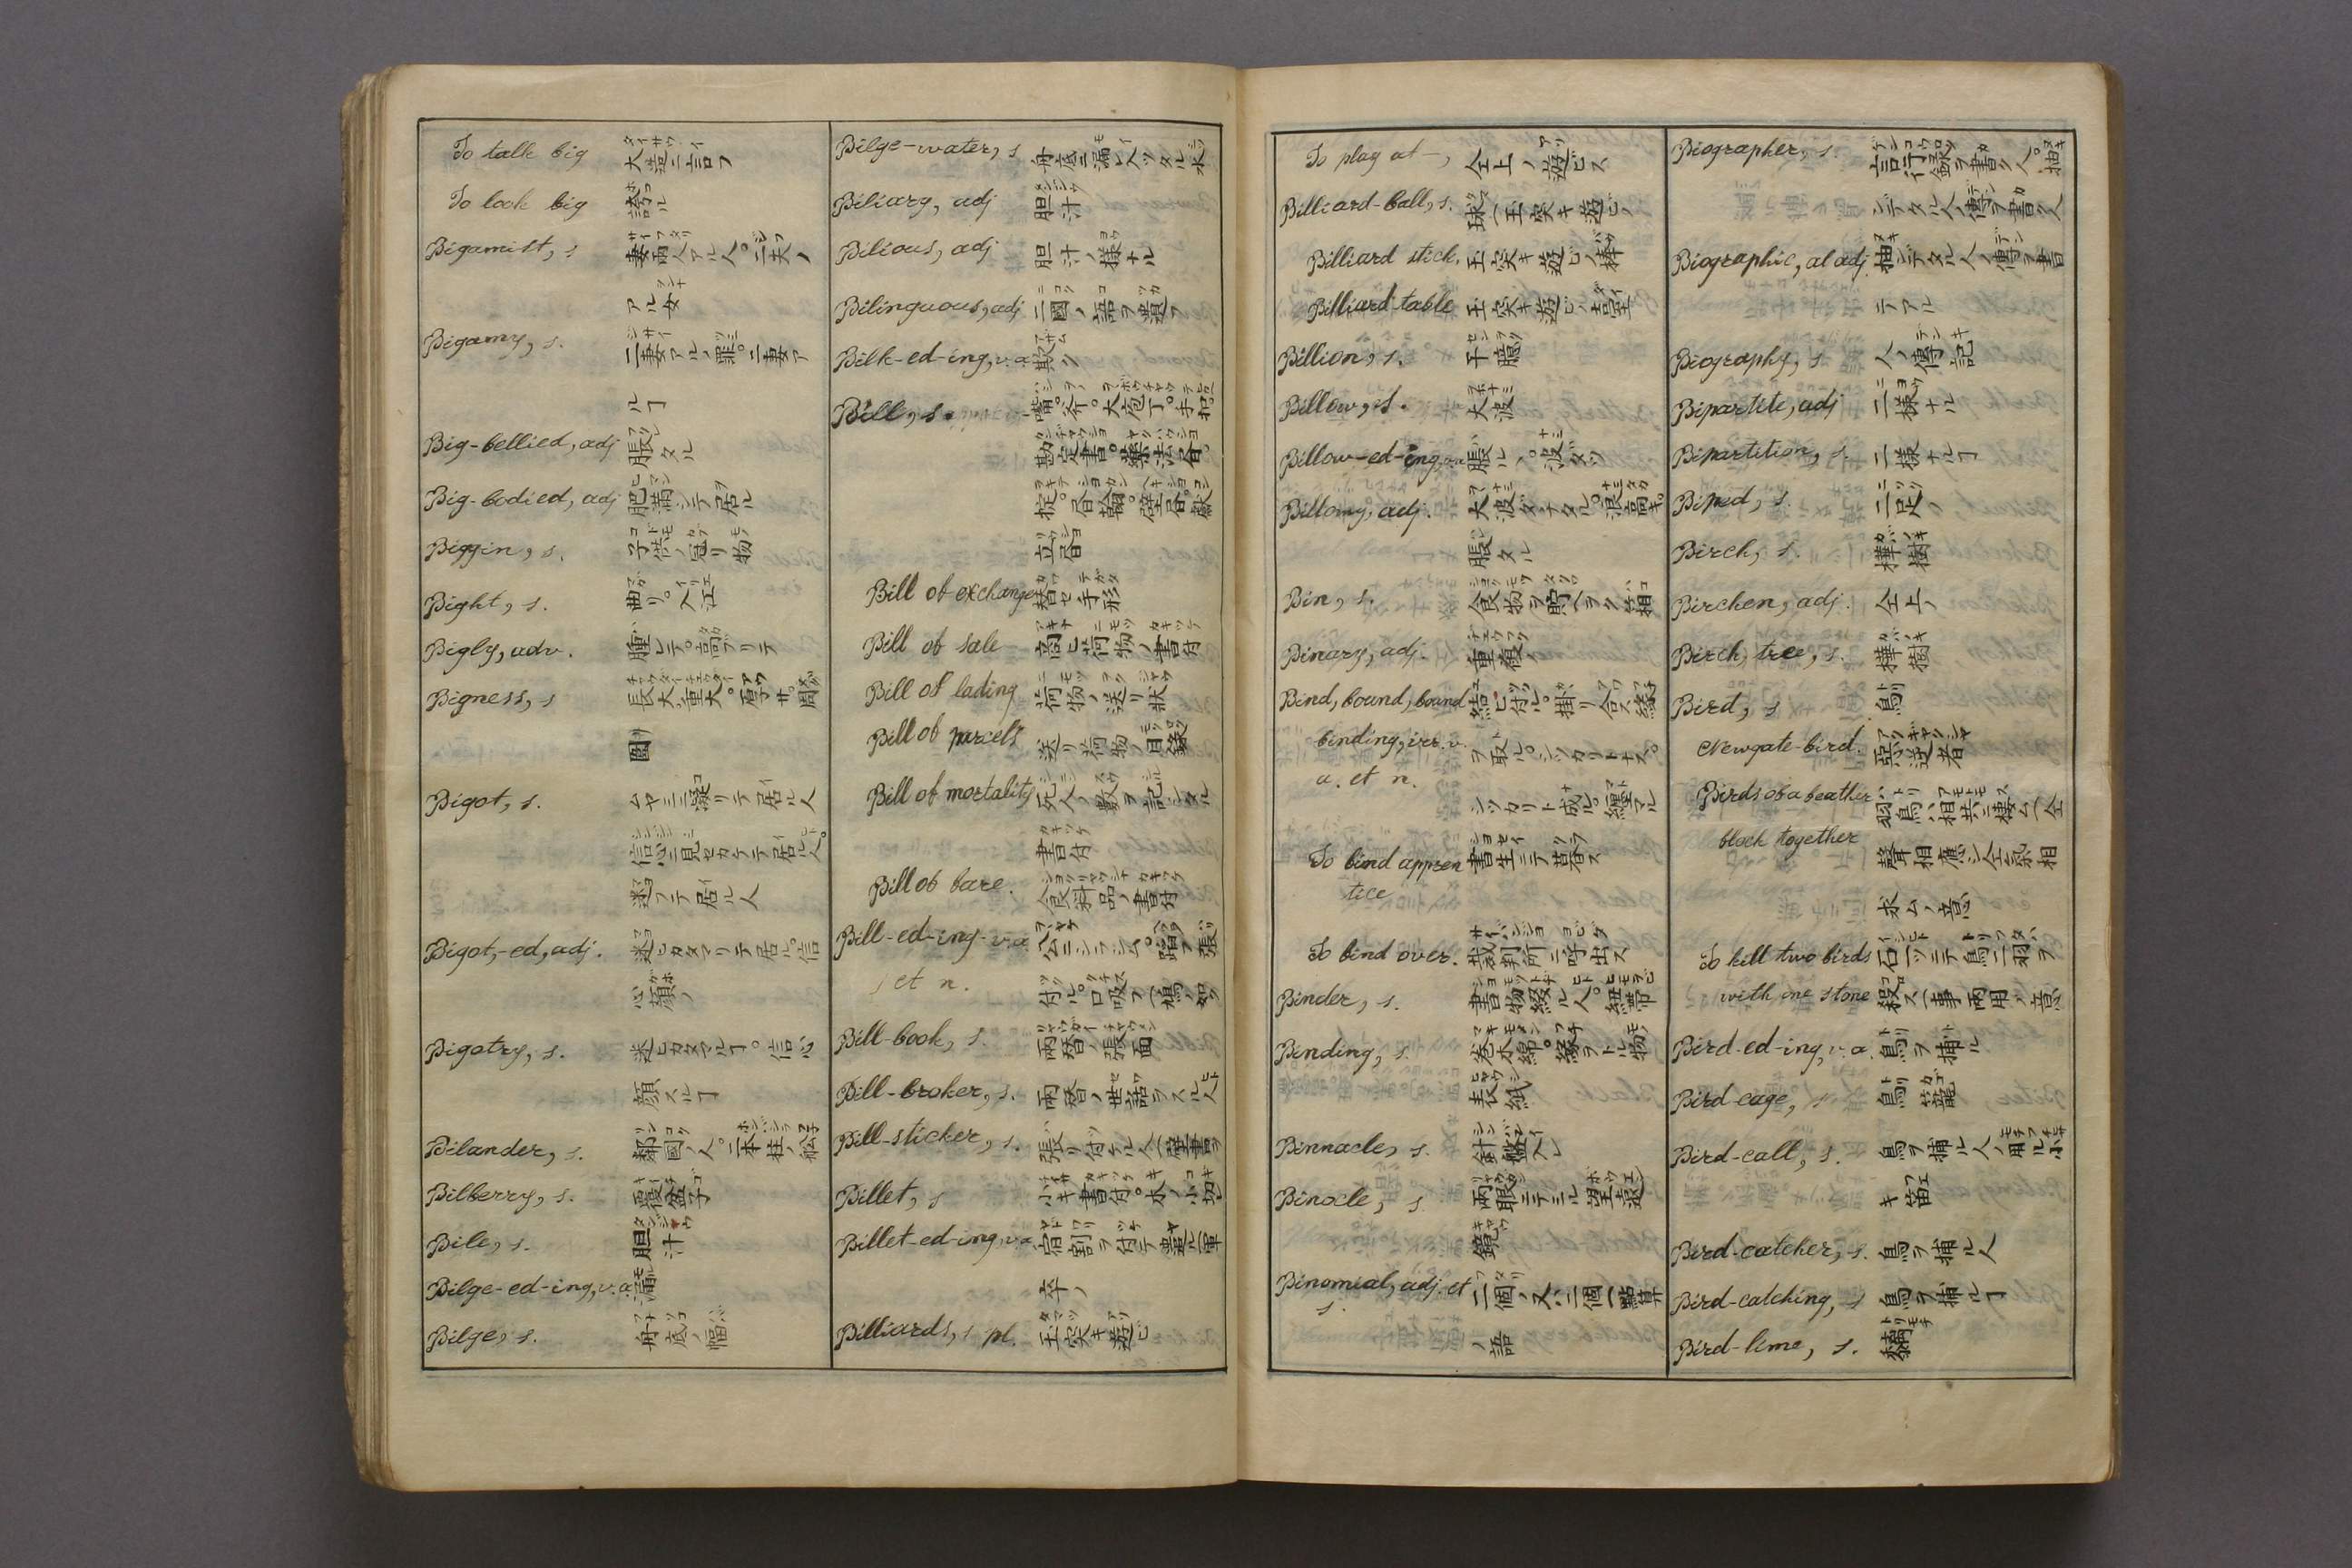 To talk big 大造ニ言フ
To look big 誇ル
Bigamist, s 妻両人アル人。二夫ノ
アル女
Bigamy, s. 二妻アルノ罪。二妻ア
ルヿ
Big-bellied, adj 脹レタル
Big-bodied, adj 肥満シテ居ル
Biggin, s. 子供ノ冠リ物
Bight, s. 曲リ。入江
Bigly, adv. 腫レテ。高ブリテ
Bigness, s 長大。重大。厚サ。周
圍
Bigot, s. ムヤミニ凝リテ居ル人
信心ニ見セカケテ居ル人。
迷フテ居ル人
Bigot,-ed, adj. 迷ヒカタマリテ居ル。信
心顔ノ
Bigotry, s. 迷ヒカタマルヿ。信心
顔スルヿ
Bilander, s. 隣國ノ人。一本柱ノ舩
Bilberry, s. 覆盆子
Bile, s. 胆汁
Bilge-ed-ing, v.a 漏ル
Bilge, s. 舟底ノ幅
Bilge-water, s 舟底ニ漏レ入ツタル水
Biliary, adj 胆汁ノ
Bilious, adj 胆汁ノ様ナル
Bilinguous, adj 二國ノ語ヲ遣フ
Bilk-ed-ing, v.a 欺ク
Bill, s. 嘴。斧。大庖丁。手形。
勘定書。薬法書。
掟。書翰。壁書。獻
立書
Bill of exchange 替セ手形
Bill of sale 商ヒ荷物ノ書付
Bill of lading 荷物ノ送リ状
Bill of parcels 送リ荷物ノ目録
Bill of mortality 死人ノ數ヲ記シタル
書付
Bill of fare. 食料品ノ書付
Bill-ed-ing-v.a 公ニシラシム。蹈フ張リ
et n. 付ル。口吸フ(鳩ノ如ク
Bill-book, s. 両替ノ張面
Bill-broker, s. 両替ノ世話ヲスル人
Bill-sticker, s. 張リ付ケル人(壁書ヲ
Billet, s 小キ書付。木ノ小切
Billet-ed-ing, v.a 宿割ヲ付テ遣ル(軍
卒ノ
Billiards, s pl. 玉突キ遊ビ
To play at —, 仝上ノ遊ビス
Billiard-ball, s. 球(玉突キ遊ビノ
Billiard stick. 玉突キ遊ビノ棒
Billiard-table 玉突キ遊ビノ臺
Billion, s. 千億
Billow, s. 大波
Billow-ed-ing, v.n 脹ル丶。波ダツ
Billowy, adj. 大波ダチタル。浪高キ。
脹レタル
Bin, s. 食物ヲ貯ヘヲク箱
Binary, adj. 重複ノ
Bind, bound, bound 結ヒ付ル。掛リ合ス。縁
binding, irr. v. ヲ取ル。シツカリトナス。
a. et n. シツカリト成ル。纏マル
To bind appren 書生ニテ暮ス
tice
To bind over. 裁判所ニ呼出ス
Binder, s. 書物綴ル人。紐帯
Binding, s. 巻木綿。縁ヲトル物
表紙
Binnacle, s. 針盤入レ
Binocle, s 両眼ニテミル望遠
鏡
Binomial, adj. et 二個ノ又ハ二個(點算
s. ノ語
Biographer, s. 言行録ヲ書ク人。抽
ンデタル人ノ傳ヲ書ク人
Biographic, al adj 抽ンデタル人ノ傳ヲ書
テアル
Biography, s 人ノ傳記
Bipartite, adj 二様ナル
Bipartition, s. 二様ナルヿ
Biped, s. 二足ノ
Birch, s. 樺樹
Birchen, adj. 仝上ノ
Birch, tree, s. 樺樹
Bird, s 鳥
Newgate-bird. 惡逆者
Birds of a feather 羽鳥ハ相共ニ棲ム(仝
flock together 聲相應シ仝氣相
求ムノ意
To kill two birds 石一ツニテ鳥二羽ヲ
with one stone 殺ス(一事両用ノ意
Bird-ed-ing, v.a. 鳥ヲ捕ル
Bird-cage, s 鳥籠
Bird-call, s. 鳥ヲ捕ル人ノ用ル小
キ笛
Bird-catcher, s. 鳥ヲ捕ル人
Bird-catching, s 鳥ヲ捕ルヿ
Bird-lime, s. 黐